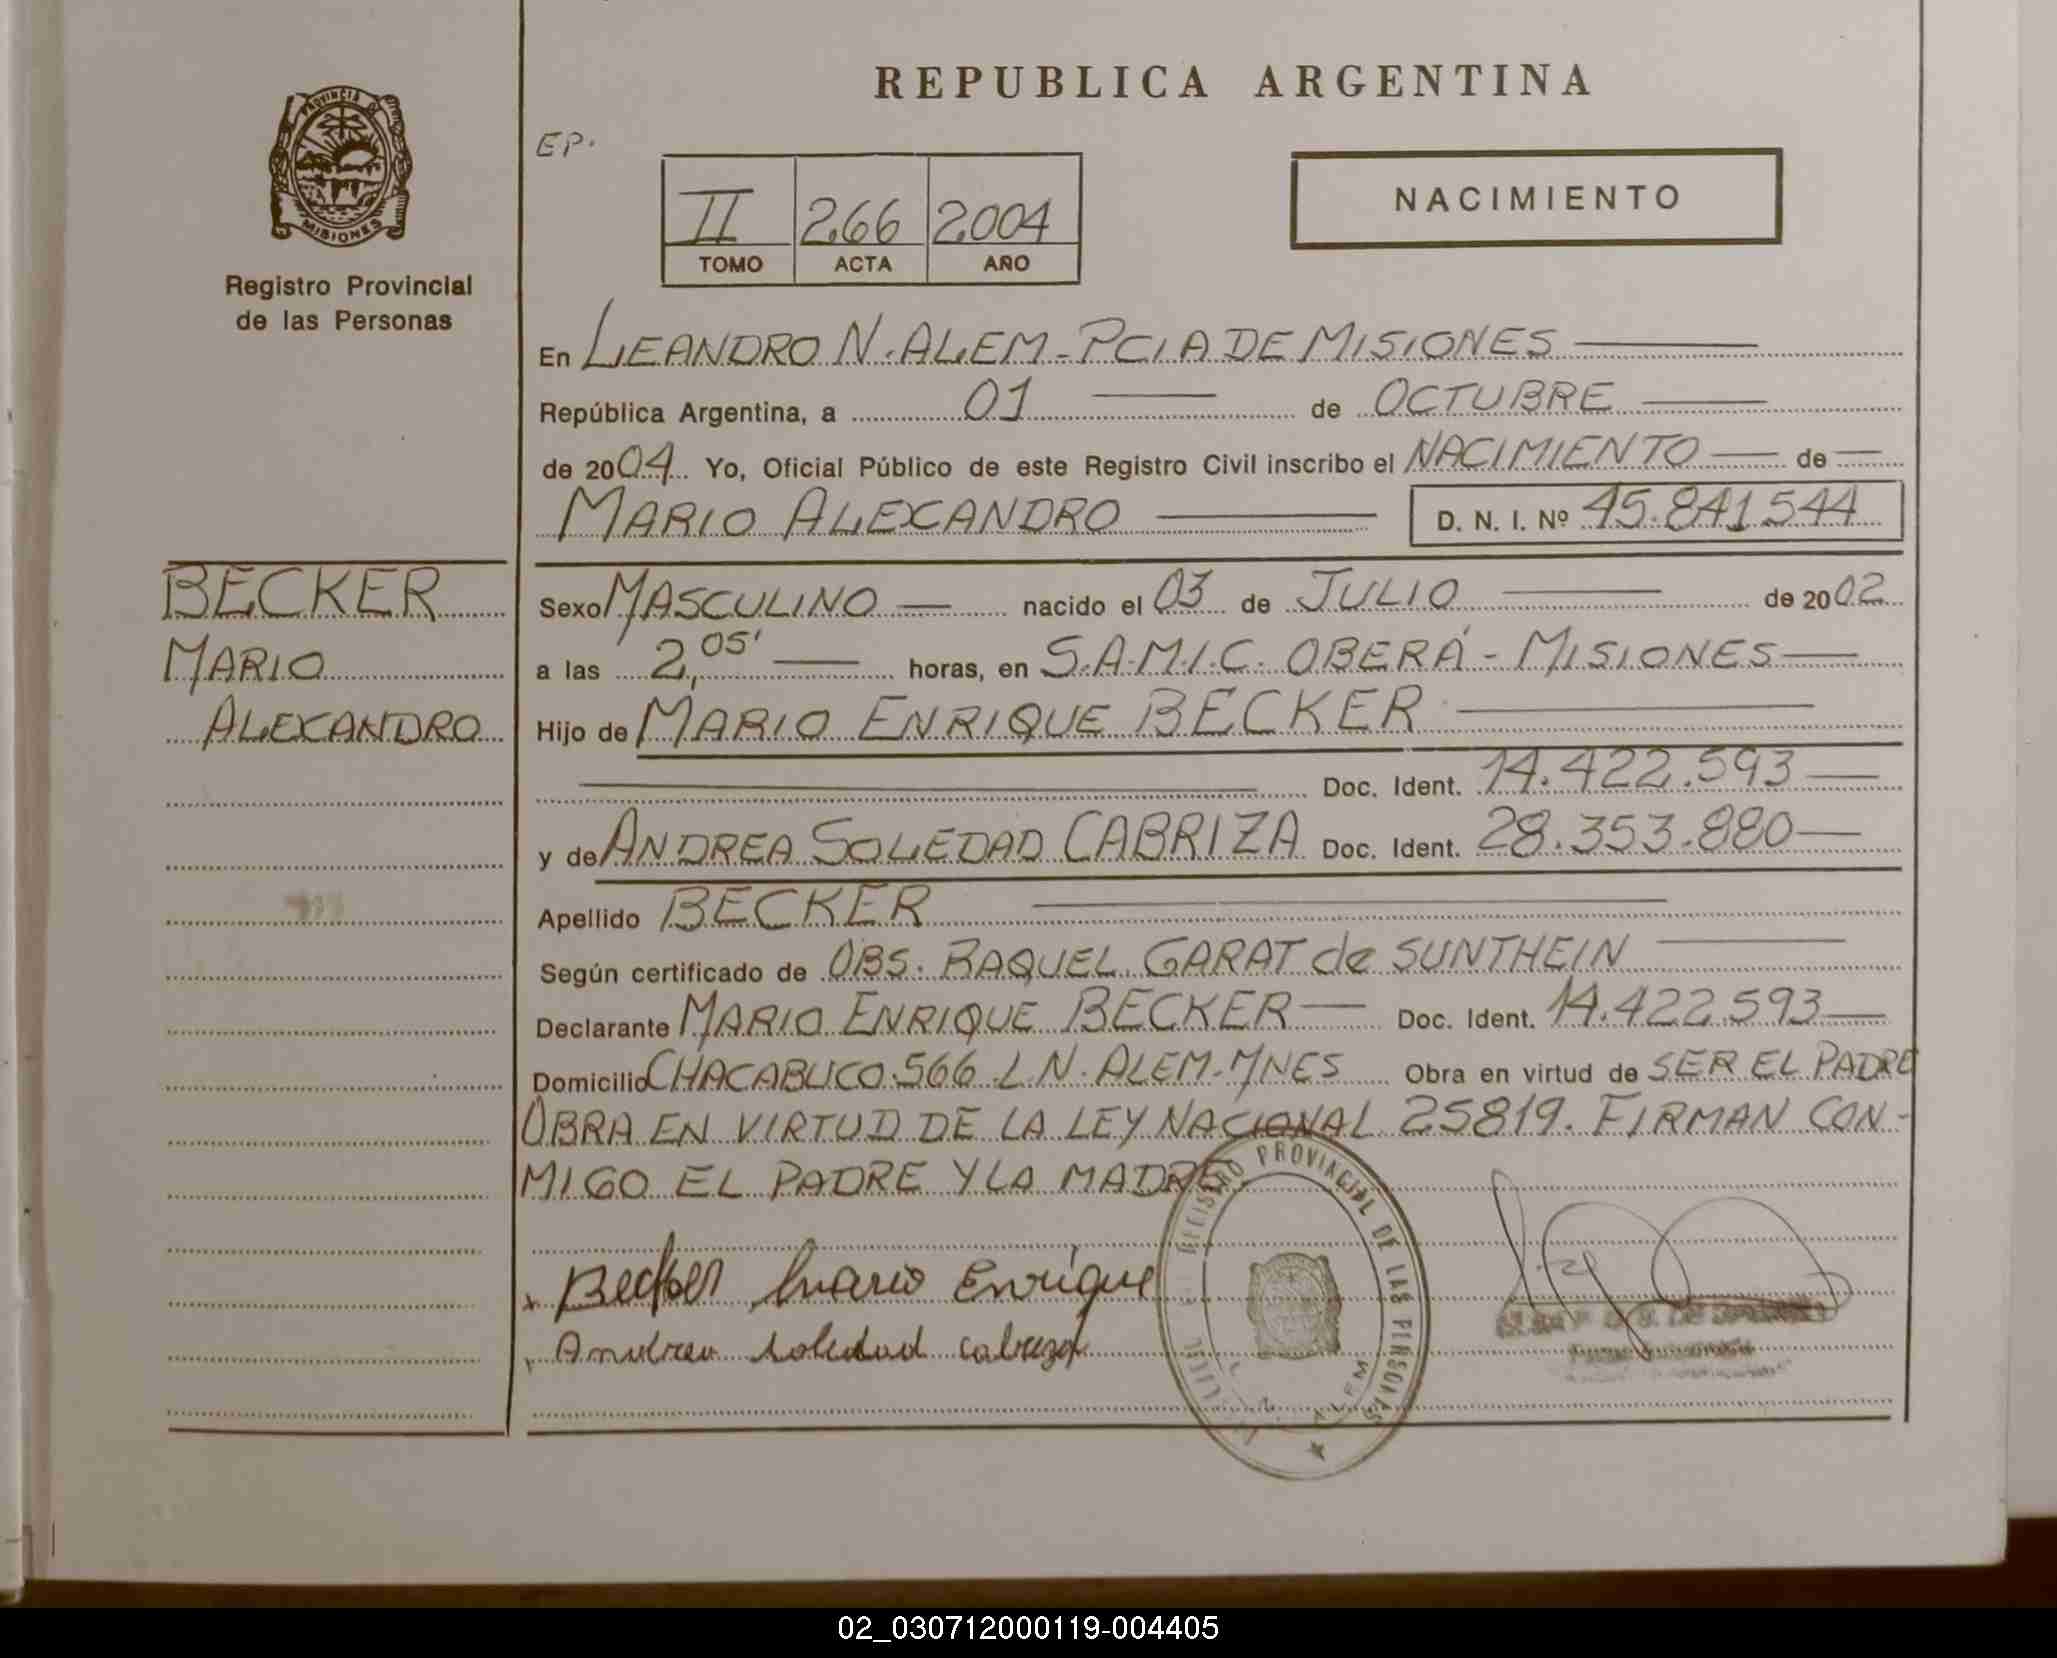 REPUBLICA ARGENTINA
PROVINCIA DE MISIONES
Registro Provincial
de las Personas
EP.
II 266 2004
TOMO ACTA AÑO
NACIMIENTO
En LEANDRO N. ALEM - PCIA DE MISIONES
República Argentina, a 01 de OCTUBRE
de 2004 Yo, Oficial Público de este Registro Civil inscribo el NACIMIENTO de
MARIO ALEXANDRO D. N. I. Nº 45.841544
BECKER
MARIO
ALEXANDRO
Sexo MASCULINO nacido el 03 de JULIO de 2002
a las 2,05' horas, en S.A.M.I.C. OBERÁ - MISIONES
Hijo de MARIO ENRIQUE BECKER
Doc. Ident. 14.422.593
y de ANDREA SOLEDAD CABRIZA Doc. Ident. 28.353.880
Apellido BECKER
Según certificado de OBS. RAQUEL GARAT de SUNTHEIN
Declarante MARIO ENRIQUE BECKER Doc. Ident. 14.422.593
Domicilio CHACABUCO 566 L.N. ALEM - MNES Obra en virtud de SER EL PADRE
OBRA EN VIRTUD DE LA LEY NACIONAL 25819. FIRMAN CON-
MIGO EL PADRE Y LA MADRE.
REGISTRO PROVINCIAL DE LAS PERSONAS
L. N. ALEM
Becker Mario Enrique
Andrea Soledad Cabriza
02_030712000119-004405